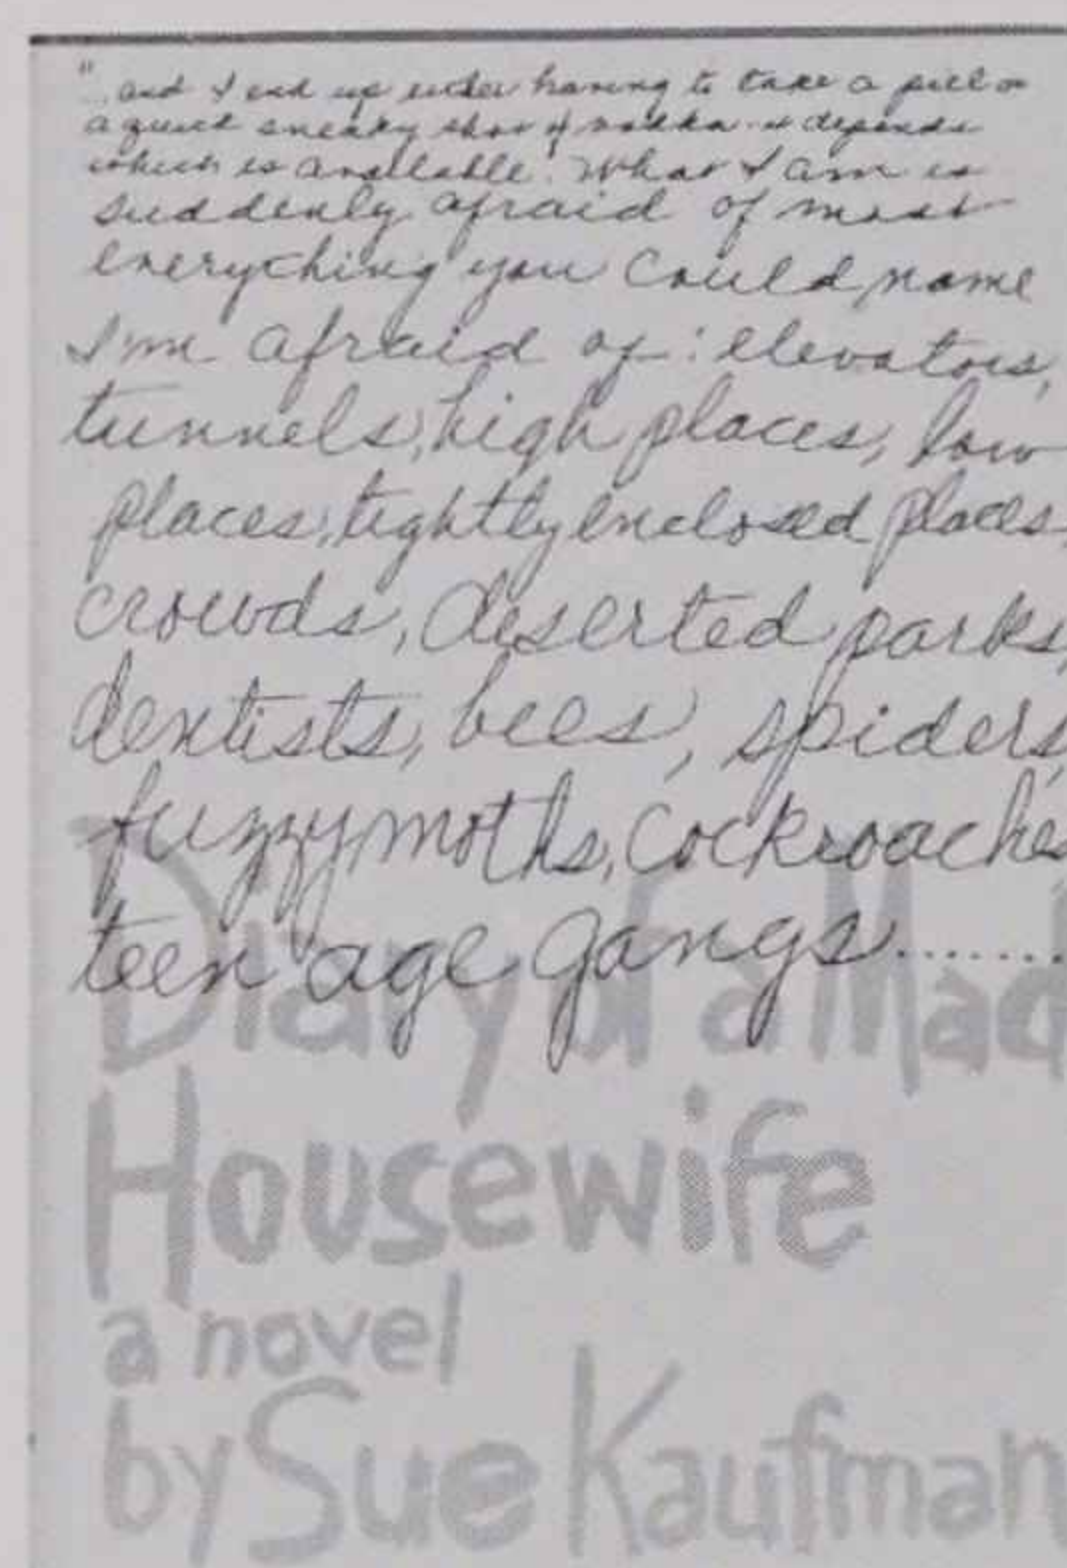 "...and I end up either having to take a pill or
a quick sneaky shot of vodka - it depends
which is available. What I am is
suddenly afraid of most
everything you could name
I'm afraid of: elevators,
tunnels, high places, low
places, tightly enclosed places,
crowds, deserted parks,
dentists, bees, spiders,
fuzzy moths, cockroaches
teen age gangs........
Diary of a Mad
Housewife
a novel
by Sue Kaufman